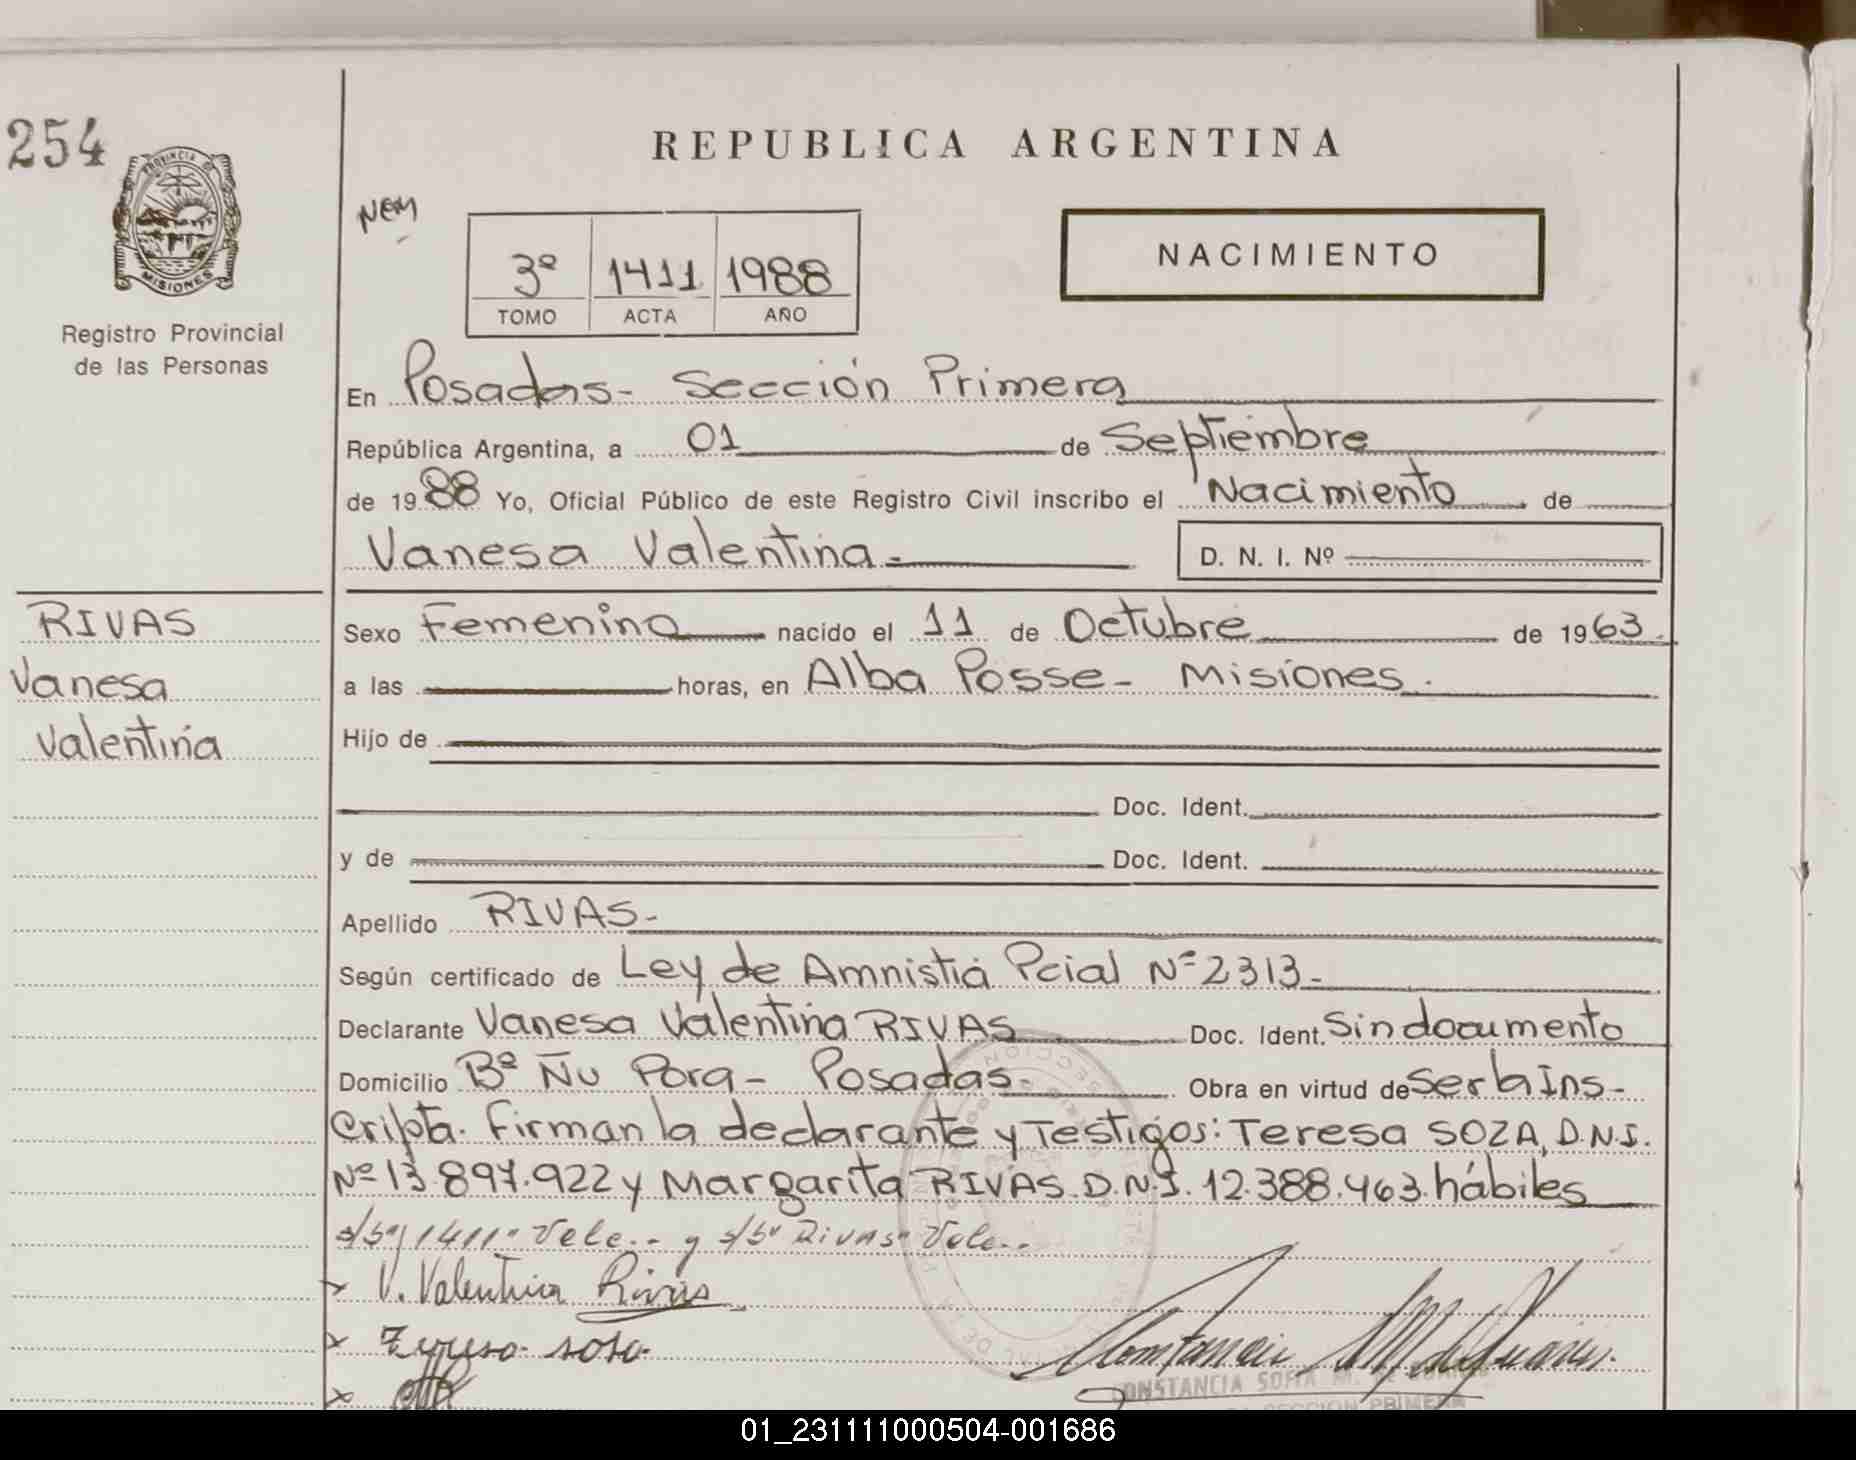 254
PROVINCIA DE
MISIONES
Registro Provincial
de las Personas
REPUBLICA ARGENTINA
NEM
3º 1411 1988
TOMO ACTA AÑO
NACIMIENTO
En Posadas- Sección Primera
República Argentina, a 01 de Septiembre
de 1988 Yo, Oficial Público de este Registro Civil inscribo el Nacimiento de
Vanesa Valentina.- D. N. I. Nº
RIVAS
Vanesa
Valentina
Sexo Femenino nacido el 11 de Octubre de 1963.
a las horas, en Alba Posse- Misiones.
Hijo de
Doc. Ident.
y de Doc. Ident.
Apellido RIVAS-
Según certificado de Ley de Amnistia Pcial Nº 2313-
Declarante Vanesa Valentina RIVAS Doc. Ident. Sin documento
Domicilio Bº Ñu Pora- Posadas- Obra en virtud de ser la Ins-
cripta. Firman la declarante y Testigos: Teresa SOZA, D.N.I.
Nº 13.897.922 y Margarita RIVAS D.N.I. 12.388.463. hábiles
s/bº "1411" Vale.- y s/bº "Rivas" Vale.-
x V. Valentina Rivas
x Teresa sosa
x
CONSTANCIA SOFIA M. DE
SECCION PRIMERA
01_231111000504-001686